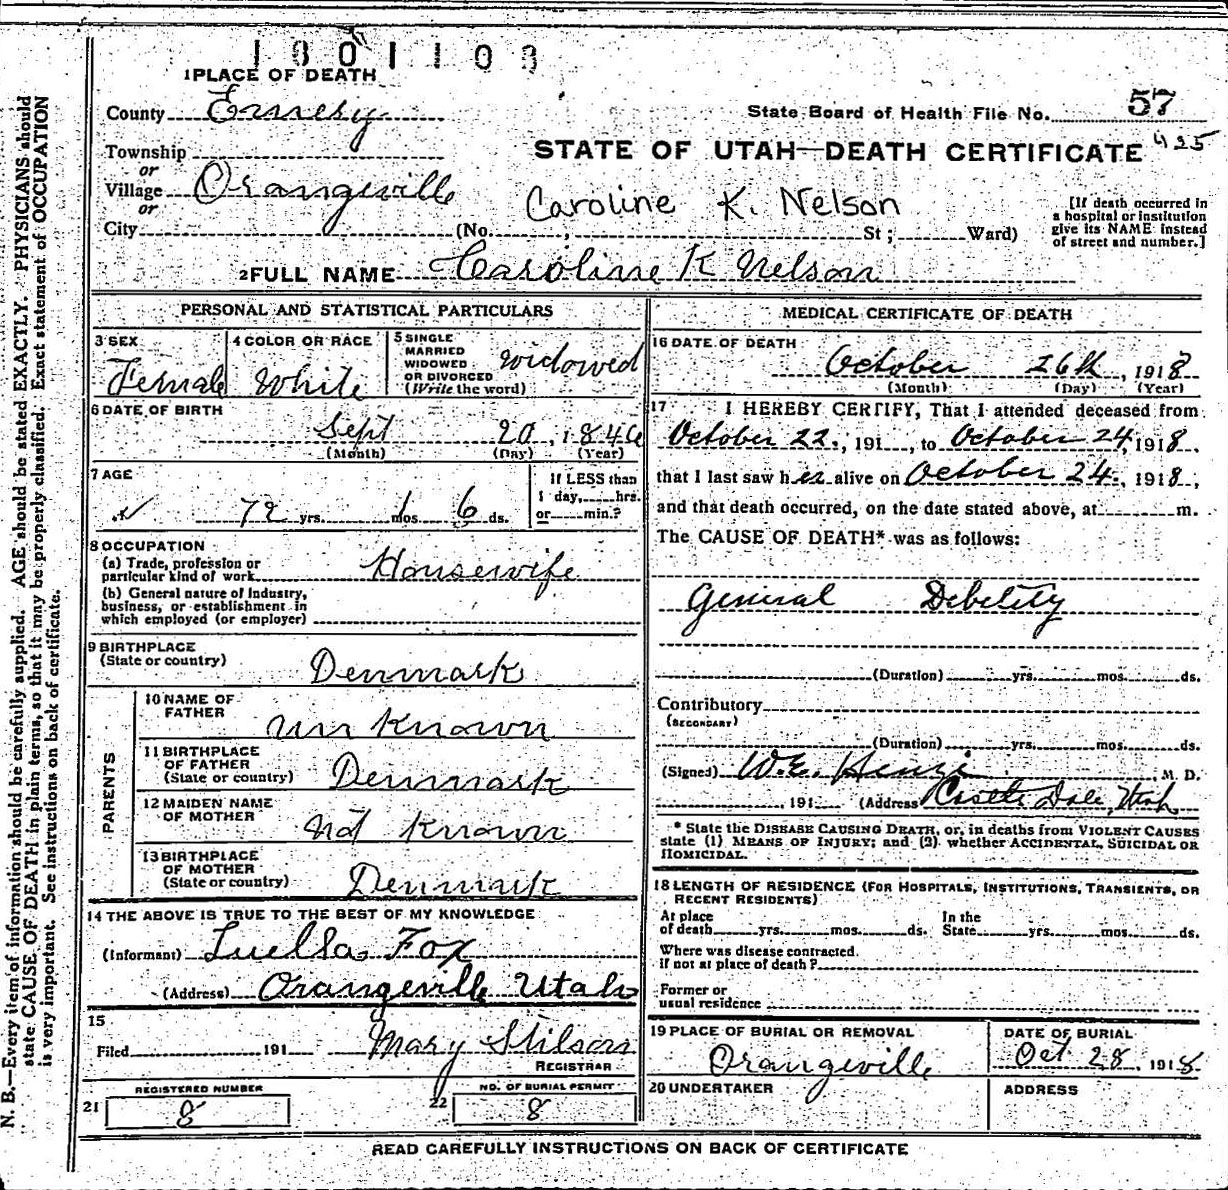 1801108
1 PLACE OF DEATH
County Emery
State Board of Health File No. 57
425
Township
or
Village Orangeville
or
City (No. , St ; Ward)
STATE OF UTAH—DEATH CERTIFICATE
Caroline K. Nelson
[If death occurred in
a hospital or institution
give its NAME instead
of street and number.]
2 FULL NAME Caroline K Nelson
PERSONAL AND STATISTICAL PARTICULARS
3 SEX
Female
4 COLOR OR RACE
White
5 SINGLE
MARRIED
WIDOWED
OR DIVORCED
(Write the word)
widowed
6 DATE OF BIRTH
Sept 20, 1846
(Month) (Day) (Year)
7 AGE
72 yrs. 1 mos. 6 ds.
If LESS than
1 day, hrs.
or min.?
8 OCCUPATION
(a) Trade, profession or
particular kind of work Housewife
(b) General nature of Industry,
business, or establishment in
which employed (or employer)
9 BIRTHPLACE
(State or country) Denmark
PARENTS
10 NAME OF
FATHER
un Known
11 BIRTHPLACE
OF FATHER
(State or country) Denmark
12 MAIDEN NAME
OF MOTHER
not Known
13 BIRTHPLACE
OF MOTHER
(State or country) Denmark
14 THE ABOVE IS TRUE TO THE BEST OF MY KNOWLEDGE
(Informant) Luella Fox
(Address) Orangeville Utah
15
Filed 191 Mary Stilson
REGISTRAR
REGISTERED NUMBER
21 8
NO. OF BURIAL PERMIT
22 8
MEDICAL CERTIFICATE OF DEATH
16 DATE OF DEATH
October 26th, 1918
(Month) (Day) (Year)
17 I HEREBY CERTIFY, That I attended deceased from
October 22, 191 , to October 24, 1918,
that I last saw her alive on October 24, 1918,
and that death occurred, on the date stated above, at m.
The CAUSE OF DEATH* was as follows:
General Debelity
(Duration) yrs. mos. ds.
Contributory
(SECONDARY)
(Duration) yrs. mos. ds.
(Signed) W.E. , M. D.
, 191 (Address) Castle Dale, Utah
* State the DISEASE CAUSING DEATH, or, in deaths from VIOLENT CAUSES
state (1) MEANS OF INJURY; and (2) whether ACCIDENTAL, SUICIDAL OR
HOMICIDAL.
18 LENGTH OF RESIDENCE (FOR HOSPITALS, INSTITUTIONS, TRANSIENTS, OR
RECENT RESIDENTS)
At place
of death yrs. mos. ds.
In the
State yrs. mos. ds.
Where was disease contracted.
if not at place of death?
Former or
usual residence
19 PLACE OF BURIAL OR REMOVAL
Orangeville
DATE OF BURIAL
Oct 28, 1918
20 UNDERTAKER
ADDRESS
READ CAREFULLY INSTRUCTIONS ON BACK OF CERTIFICATE
N. B.—Every item of information should be carefully supplied. AGE should be stated EXACTLY. PHYSICIANS should
state CAUSE OF DEATH in plain terms, so that it may be properly classified. Exact statement of OCCUPATION
is very important. See instructions on back of certificate.